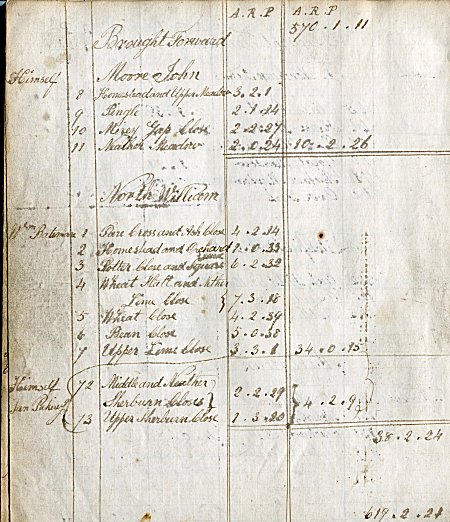 A. R. P A. R. P
Brought Forward 570. 1. 11
Himself Moore John
8 Homestead and Upper Meadow 3. 2. 1
9 Pingle 2. 1. 14
10 Mirey Gap Close 2. 2. 27
11 Neather Meadow 2. 0. 24 10. 2. 26
North William
Wm Bateman 1 Pare Cross and Ash Close 4. 2. 14
2 Homestead and Orchard 1. 0. 33
3 Potter Close and Square 6. 2. 32
4 Wheat Flatt and Nether
Lime Close } 7. 3. 18
5 Wheat Close 4. 2. 39
6 Bean Close 5. 0. 38
7 Upper Lime Close 3. 3. 1 34. 0. 15
Himself 72 Middle and Neather
Sherburn Closes } 2. 2. 29
73 Upper Sherburn Close 1. 3. 20 } 4. 2. 9
38. 2. 24
619. 2. 21